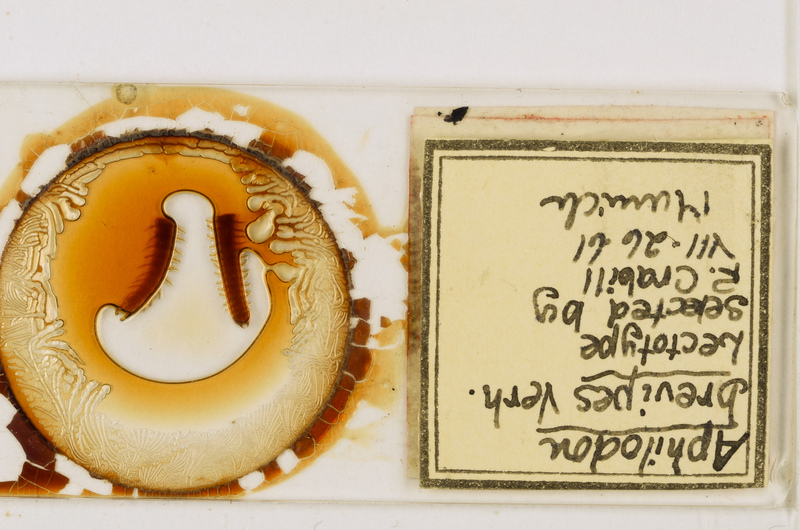 Aphilodon
brevipes Verh.
Lectotype
selected by
R. Crabill
VII-26 61
Munich